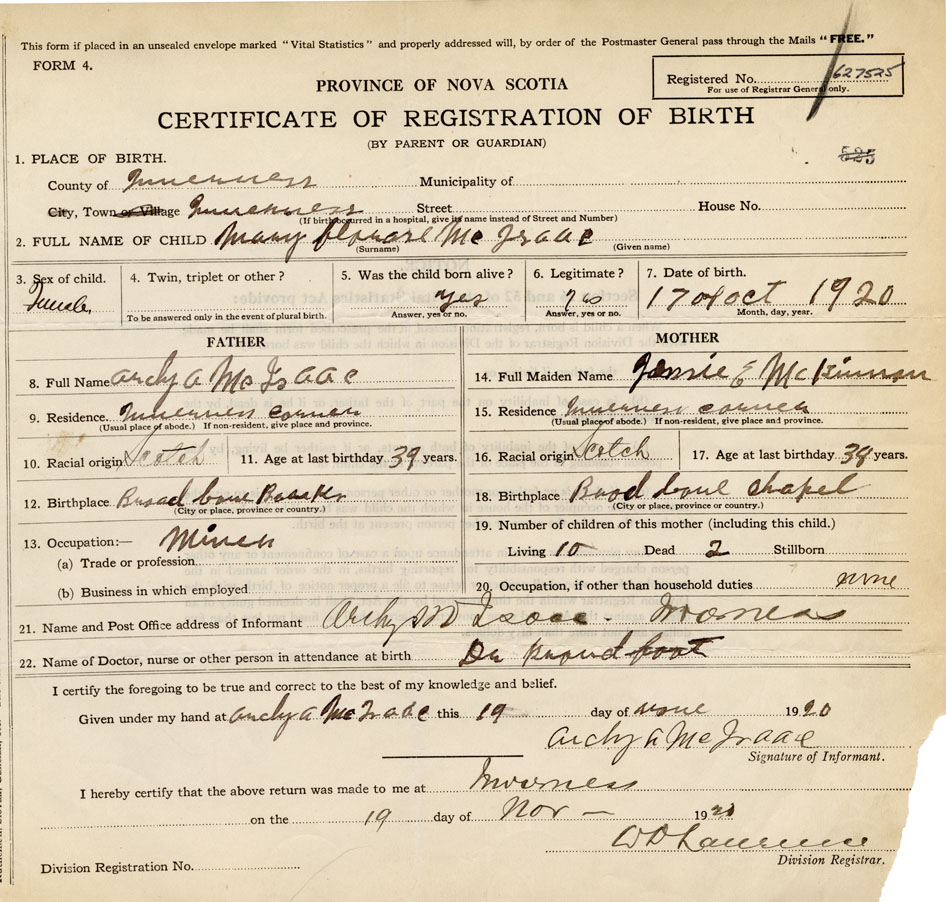 This form if placed in an unsealed envelope marked "Vital Statistics" and properly addressed will, by order of the Postmaster General pass through the Mails "FREE."
FORM 4.
Registered No. 627525
For use of Registrar General only.
PROVINCE OF NOVA SCOTIA
CERTIFICATE OF REGISTRATION OF BIRTH
(BY PARENT OR GUARDIAN)
525
1. PLACE OF BIRTH.
County of Inverness Municipality of
City, Town or Village Inverness Street House No.
(If birth occurred in a hospital, give its name instead of Street and Number)
2. FULL NAME OF CHILD Mary Mc Isaac
(Surname) (Given name)
3. Sex of child. 4. Twin, triplet or other ? 5. Was the child born alive ? 6. Legitimate ? 7. Date of birth.
Female yes yes 17 of oct 1920
To be answered only in the event of plural birth. Answer, yes or no. Answer, yes or no. Month, day, year.
FATHER
8. Full Name archy a Mc Isaac
9. Residence Inverness corner
(Usual place of abode.) If non-resident, give place and province.
10. Racial origin Scotch 11. Age at last birthday 39 years.
12. Birthplace Broad cove
(City or place, province or country.)
13. Occupation:— Miner
(a) Trade or profession
(b) Business in which employed
MOTHER
14. Full Maiden Name Jennie E McKinnon
15. Residence Inverness corner
(Usual place of abode.) If non-resident, give place and province.
16. Racial origin Scotch 17. Age at last birthday 39 years.
18. Birthplace Brod cove chapel
(City or place, province or country.)
19. Number of children of this mother (including this child.)
Living 10 Dead 2 Stillborn
20. Occupation, if other than household duties none
21. Name and Post Office address of Informant Archy Isaac - Inverness
22. Name of Doctor, nurse or other person in attendance at birth Dr foot
I certify the foregoing to be true and correct to the best of my knowledge and belief.
Given under my hand at archy a Mc Isaac this 19 day of 1920
archy a Mc Isaac
Signature of Informant.
I hereby certify that the above return was made to me at Inverness
on the 19 day of Nov — 1920
Division Registrar.
Division Registration No.